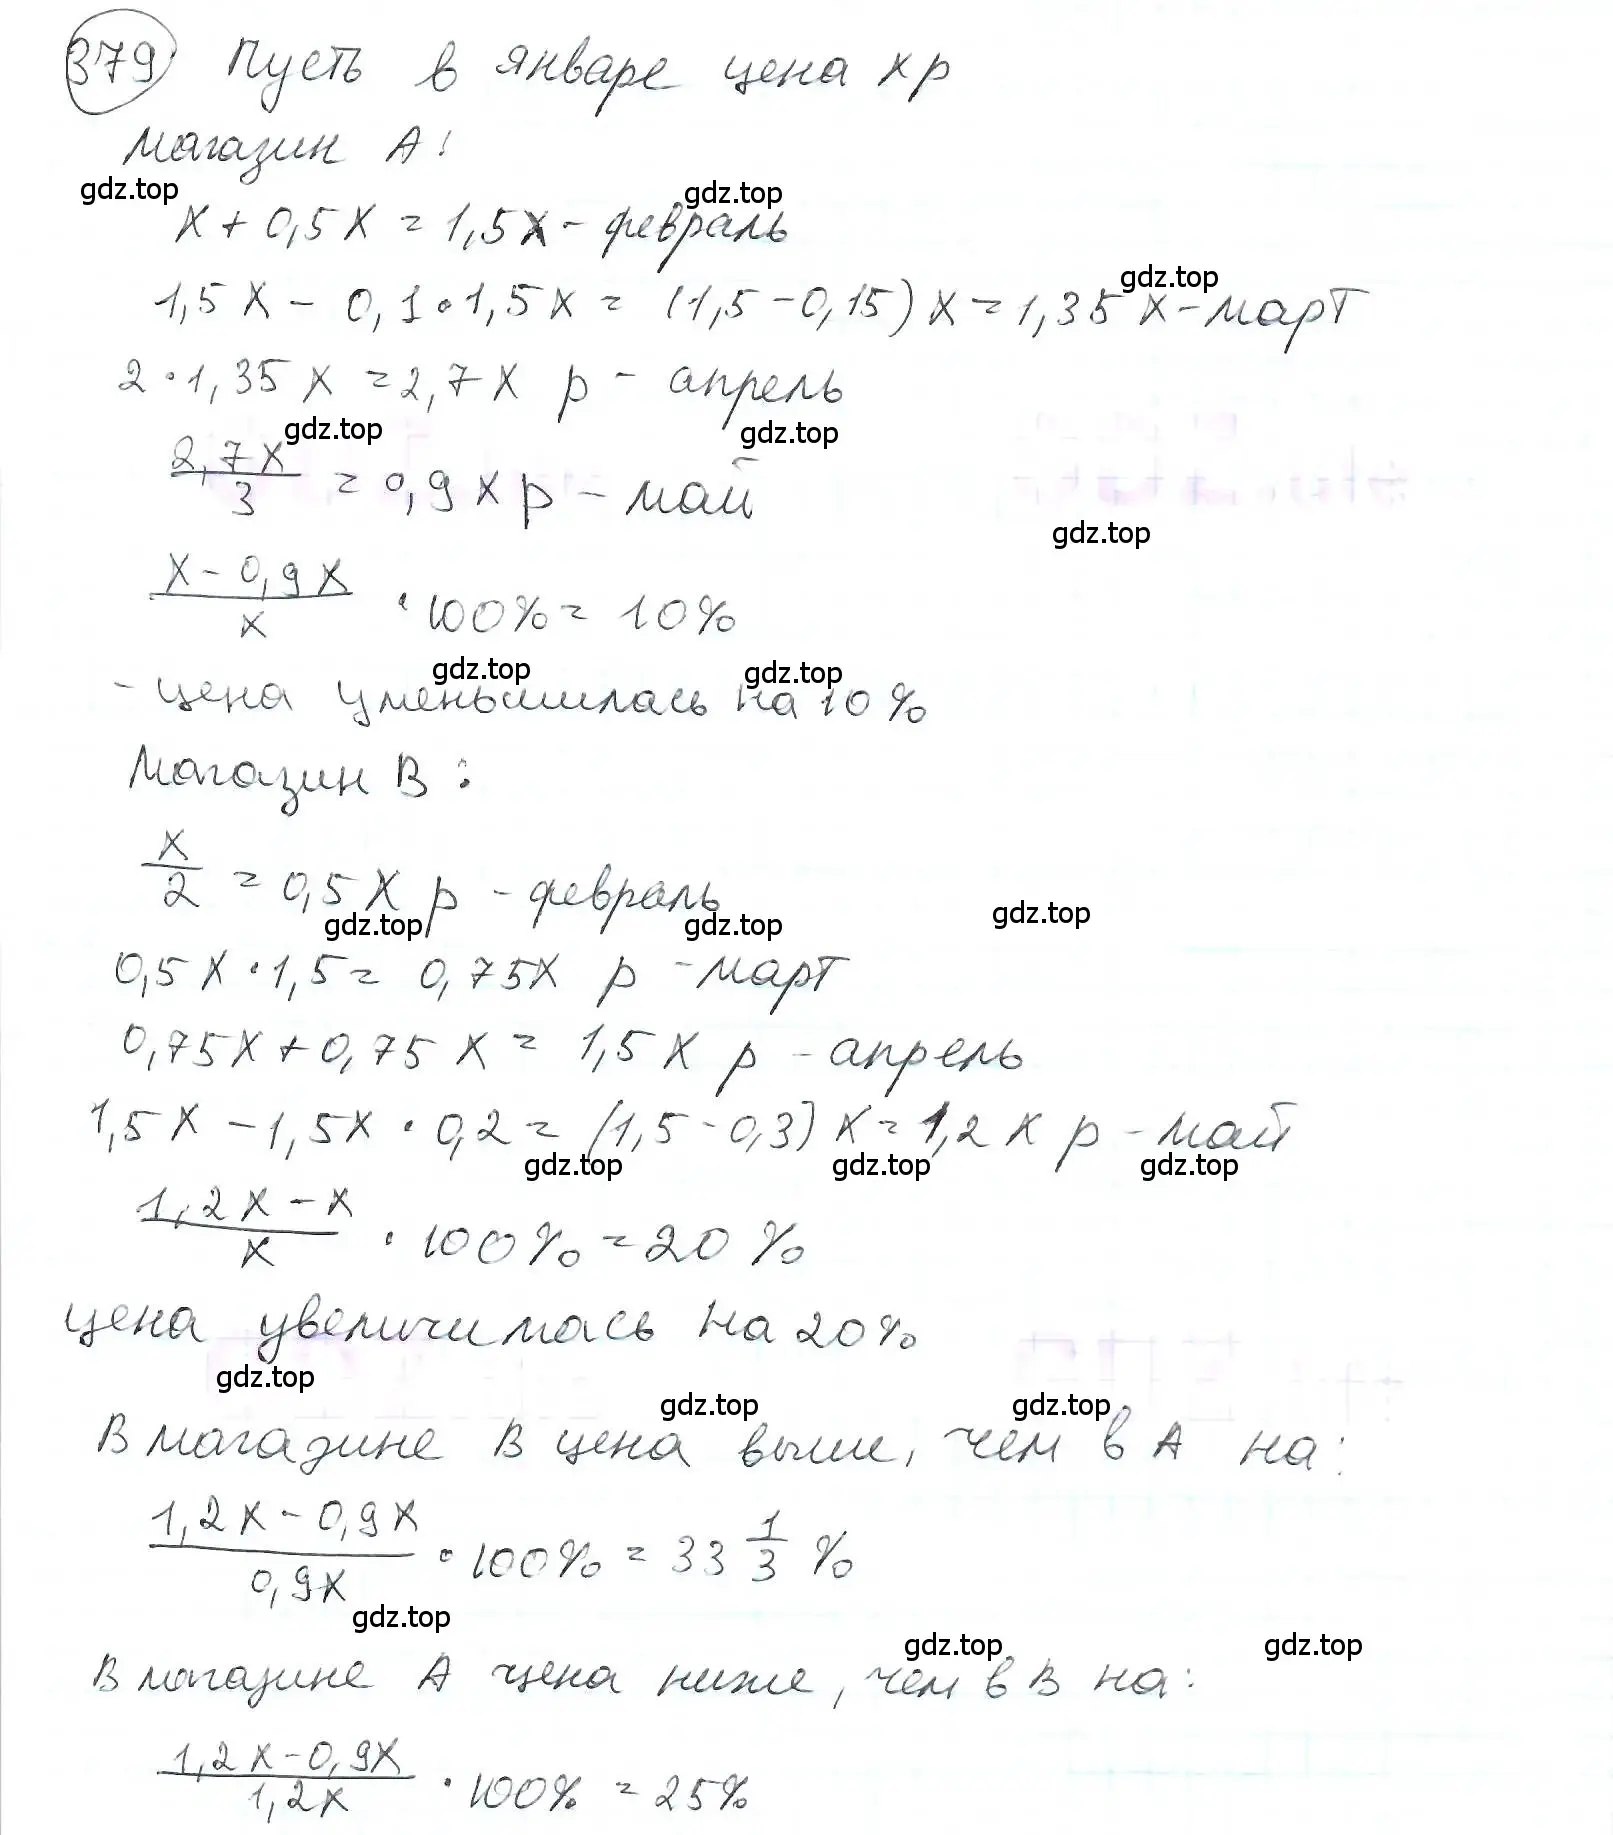 379 Пусть в январе цена x р
Магазин А:
gdz.top gdz.top
x + 0,5x = 1,5x - февраль
gdz.top
1,5x - 0,1•1,5x = (1,5-0,15)x = 1,35x - март
2•1,35x = 2,7x р - апрель
gdz.top gdz.top
2,7x/3 = 0,9x р - май
gdz.top
(x-0,9x)/x • 100% = 10%
gdz.top gdz.top
- цена уменьшилась на 10%
Магазин В:
x/2 = 0,5x р - февраль
gdz.top gdz.top gdz.top
0,5x•1,5 = 0,75x р - март
0,75x+0,75x = 1,5x р - апрель
1,5x - 1,5x • 0,2 = (1,5-0,3)x = 1,2x р - май
gdz.top gdz.top gdz.top
(1,2x-x)/x • 100% = 20%
цена увеличилась на 20%
gdz.top gdz.top gdz.top
В магазине В цена выше, чем в А на:
(1,2x-0,9x)/0,9x • 100% = 33 1/3 %
gdz.top gdz.top gdz.top
В магазине А цена ниже, чем в В на:
(1,2x-0,9x)/1,2x • 100% = 25%